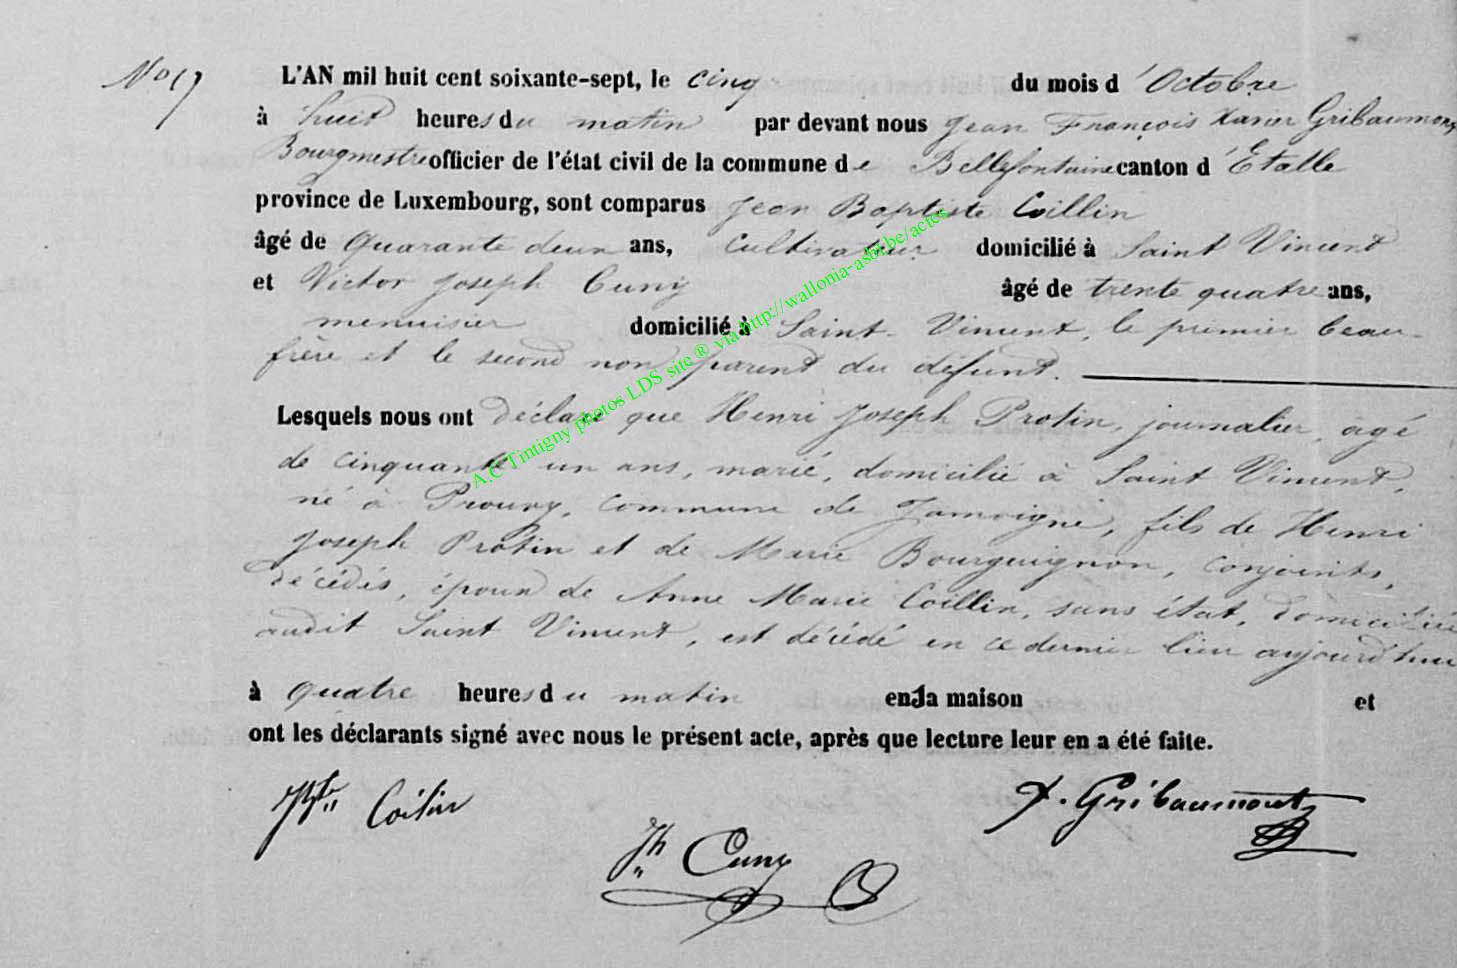 No 17
L'AN mil huit cent soixante-sept, le cinq du mois d'Octobre
à huit heures du matin par devant nous Jean François Xavier Gribaumont,
Bourgmestre officier de l'état civil de la commune de Bellefontaine canton d'Etalle
province de Luxembourg, sont comparus Jean Baptiste Coillin
âgé de quarante deux ans, cultivateur domicilié à Saint Vincent
et Victor Joseph Cuny âgé de trente quatre ans,
menuisier domicilié à Saint-Vincent, le premier beau-
frère et le second non parent du défunt.
Lesquels nous ont déclaré que Henri Joseph Protin, journalier, âgé
de cinquante un ans, marié, domicilié à Saint Vincent,
né à Prouvy, commune de Jamoigne, fils de Henri
Joseph Protin et de Marie Bourguignon, conjoints,
décédés, époux de Anne Marie Coillin, sans état, domiciliée
audit Saint Vincent, est décédé en ce dernier lieu aujourd'hui
à quatre heures du matin en la maison et
ont les déclarants signé avec nous le présent acte, après que lecture leur en a été faite.
Coilin
X. Gribaumont
Jh Cuny
A.C Tintigny photos LDS site ® via http://wallonia-asbl.be/actes